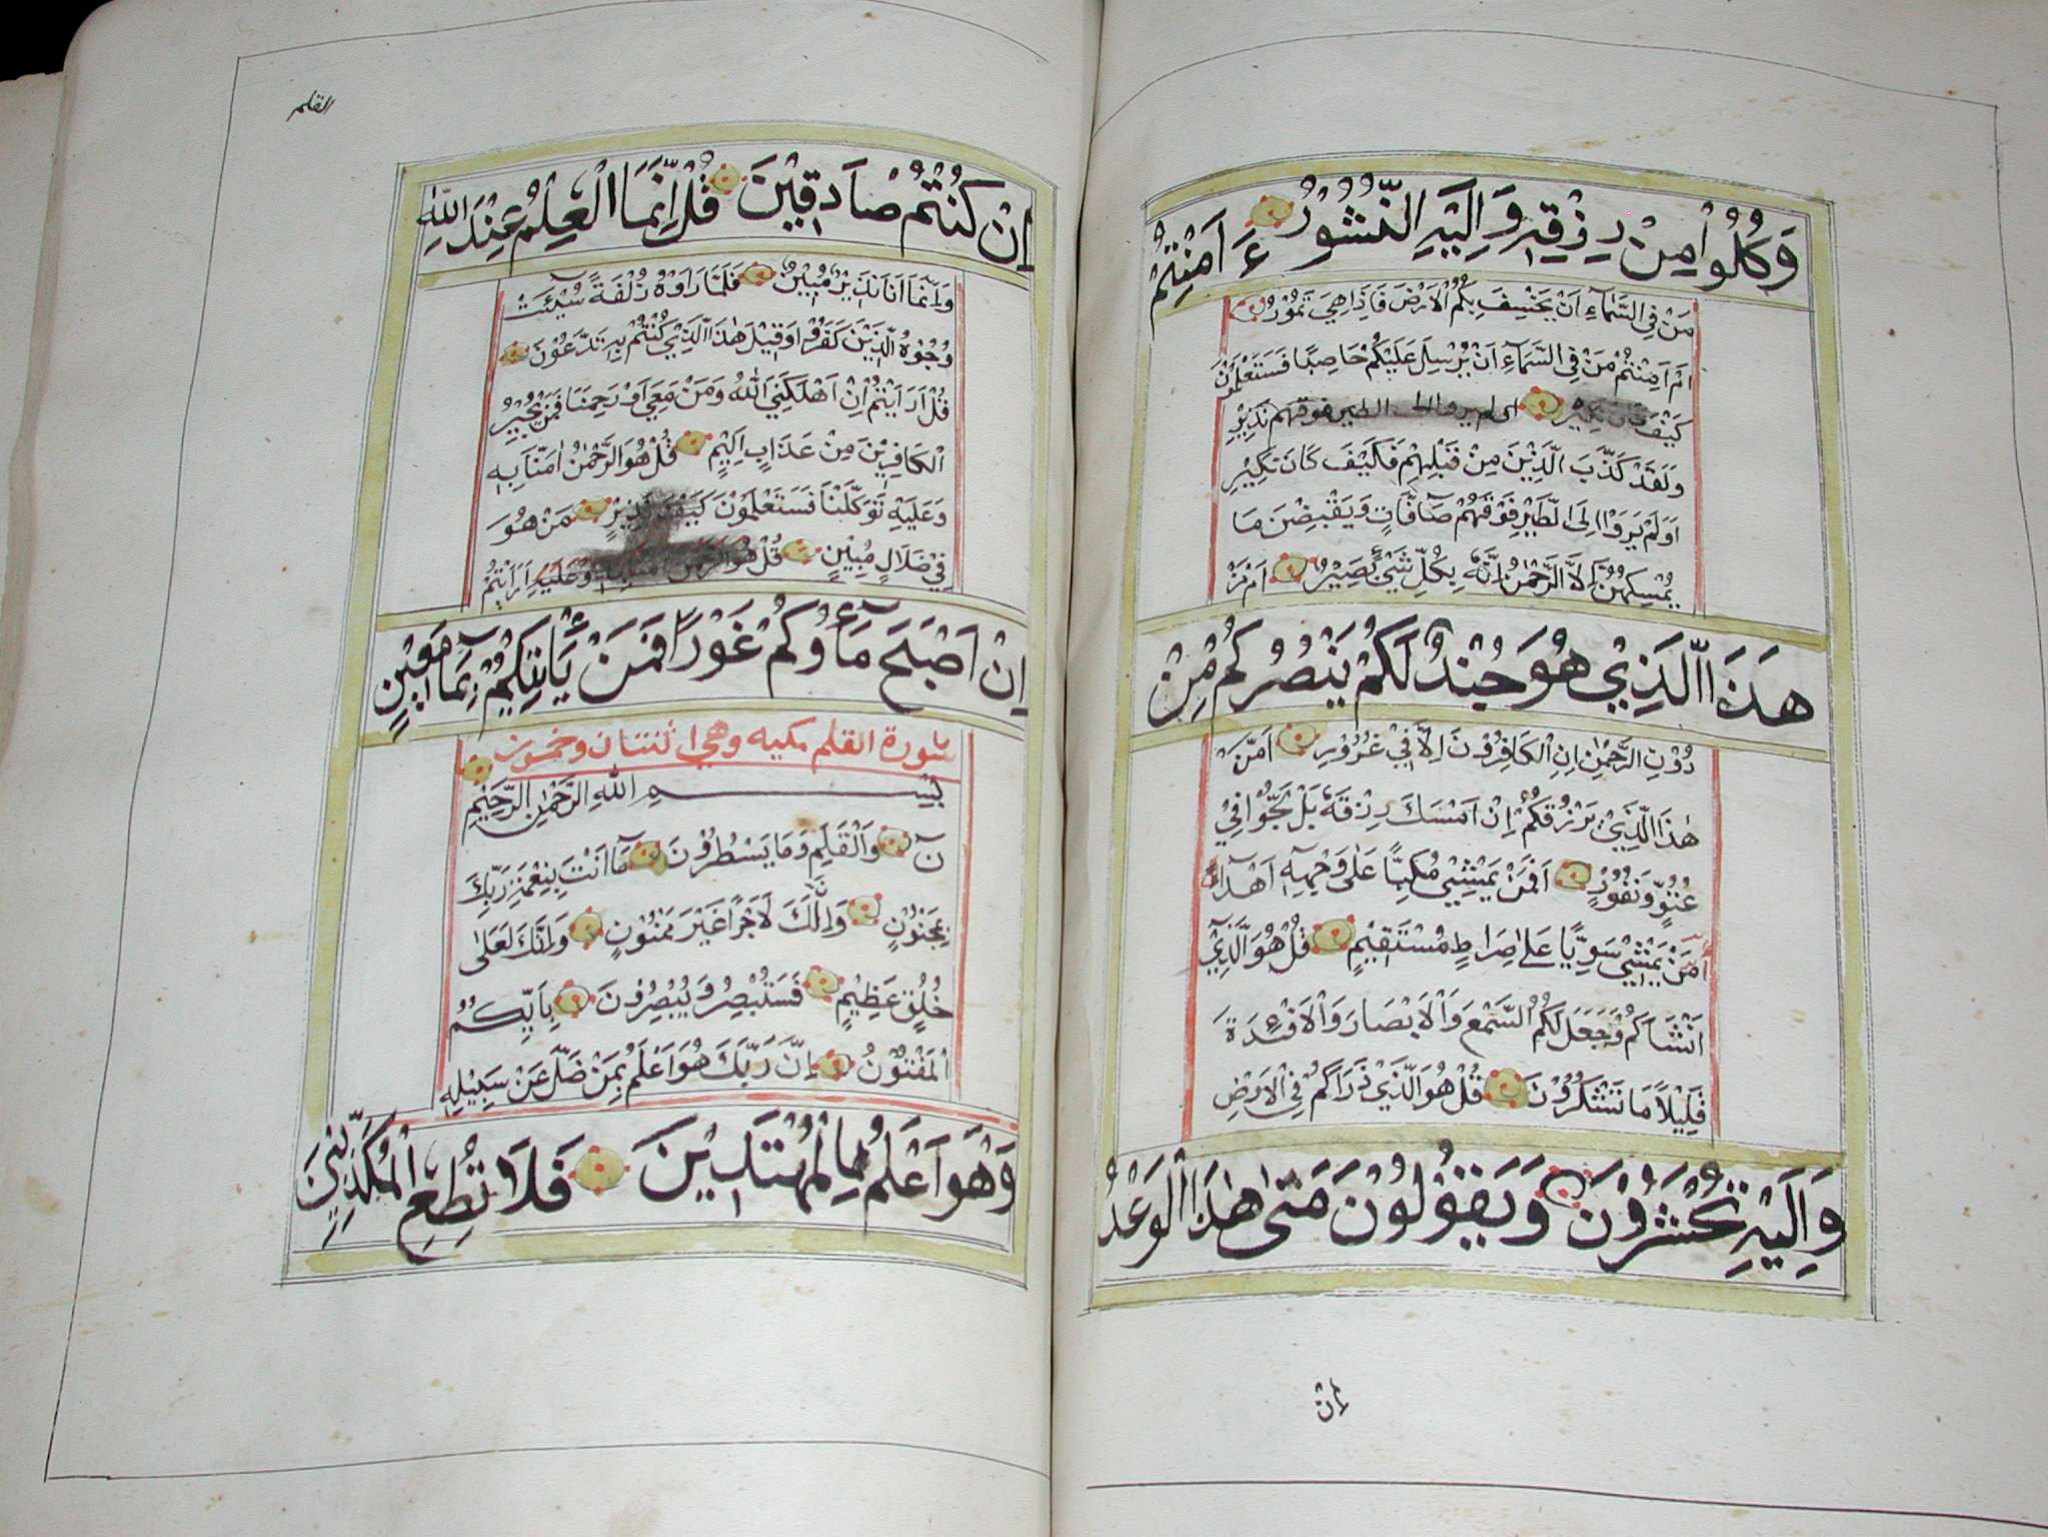 وَكُلُوا مِنْ رِزْقِهِ وَاِلَيْهِ النُّشُوْرُ ءَ اَمِنْتُمْ
مَنْ فِى السَّمَآءِ اَنْ يَخْسِفَ بِكُمُ الْاَرْضَ فَاِذَا هِيَ تَمُوْرُ
اَمْ اَمِنْتُمْ مَنْ فِى السَّمَآءِ اَنْ يُرْسِلَ عَلَيْكُمْ حَاصِبًا فَسَتَعْلَمُوْنَ
كَيْفَ نَكِيْرِ الطير فوقهم نَذِيْرِ
وَلَقَدْ كَذَّبَ الَّذِيْنَ مِنْ قَبْلِهِمْ فَكَيْفَ كَانَ نَكِيْرِ
اَوَلَمْ يَرَوْا اِلَى الطَّيْرِ فَوْقَهُمْ صَآفَّاتٍ وَيَقْبِضْنَ مَا
يُمْسِكُهُنَّ اِلَّا الرَّحْمٰنُ اِنَّهُ بِكُلِّ شَيْءٍ بَصِيْرٌ اَمْ مَنْ
هَذَا الَّذِيْ هُوَ جُنْدٌ لَكُمْ يَنْصُرُكُمْ مِنْ
دُوْنِ الرَّحْمٰنِ اِنِ الْكَافِرُوْنَ اِلَّا فِيْ غُرُوْرٍ اَمَّنْ
هٰذَا الَّذِيْ يَرْزُقُكُمْ اِنْ اَمْسَكَ رِزْقَهُ بَلْ لَجُّوْا فِيْ
عُتُوٍّ وَنُفُوْرٍ اَفَمَنْ يَمْشِيْ مُكِبًّا عَلٰى وَجْهِهِ اَهْدَآ
اَمَّنْ يَمْشِيْ سَوِيًّا عَلٰى صِرَاطٍ مُسْتَقِيْمٍ قُلْ هُوَ الَّذِيْ
اَنْشَاَكُمْ وَجَعَلَ لَكُمُ السَّمْعَ وَالْاَبْصَارَ وَالْاَفْئِدَةَ
قَلِيْلًا مَا تَشْكُرُوْنَ قُلْ هُوَ الَّذِيْ ذَرَاَكُمْ فِى الْاَرْضِ
وَاِلَيْهِ تُحْشَرُوْنَ وَيَقُوْلُوْنَ مَتٰى هٰذَا الْوَعْدُ
اِنْ
القلم
اِنْ كُنْتُمْ صَادِقِيْنَ قُلْ اِنَّمَا الْعِلْمُ عِنْدَ اللّٰهِ
وَاِنَّمَا اَنَا نَذِيْرٌ مُبِيْنٌ فَلَمَّا رَاَوْهُ زُلْفَةً سِيْئَتْ
وُجُوْهُ الَّذِيْنَ كَفَرُوْا وَقِيْلَ هٰذَا الَّذِيْ كُنْتُمْ بِهِ تَدَّعُوْنَ
قُلْ اَرَاَيْتُمْ اِنْ اَهْلَكَنِيَ اللّٰهُ وَمَنْ مَعِيَ اَوْ رَحِمَنَا فَمَنْ يُجِيْرُ
الْكَافِرِيْنَ مِنْ عَذَابٍ اَلِيْمٍ قُلْ هُوَ الرَّحْمٰنُ اٰمَنَّا بِهِ
وَعَلَيْهِ تَوَكَّلْنَا فَسَتَعْلَمُوْنَ كَيْفَ نَذِيْرٌ مَنْ هُوَ
فِيْ ضَلَالٍ مُبِيْنٍ قُلْ هُوَ الرَّحْمٰنُ وَعَلَيْهِ اَرَاَيْتُمْ
اِنْ اَصْبَحَ مَآؤُكُمْ غَوْرًا فَمَنْ يَاْتِيْكُمْ بِمَآءٍ مَعِيْنٍ
سورة القلم مكيه وهي اثنتان وخمسون
بِسْمِ اللّٰهِ الرَّحْمٰنِ الرَّحِيْمِ
نٓ وَالْقَلَمِ وَمَا يَسْطُرُوْنَ مَا اَنْتَ بِنِعْمَةِ رَبِّكَ
بِمَجْنُوْنٍ وَاِنَّ لَكَ لَاَجْرًا غَيْرَ مَمْنُوْنٍ وَاِنَّكَ لَعَلٰى
خُلُقٍ عَظِيْمٍ فَسَتُبْصِرُ وَيُبْصِرُوْنَ بِاَيِّكُمُ
الْمَفْتُوْنُ اِنَّ رَبَّكَ هُوَ اَعْلَمُ بِمَنْ ضَلَّ عَنْ سَبِيْلِهِ
وَهُوَ اَعْلَمُ بِالْمُهْتَدِيْنَ فَلَا تُطِعِ الْمُكَذِّبِيْنَ